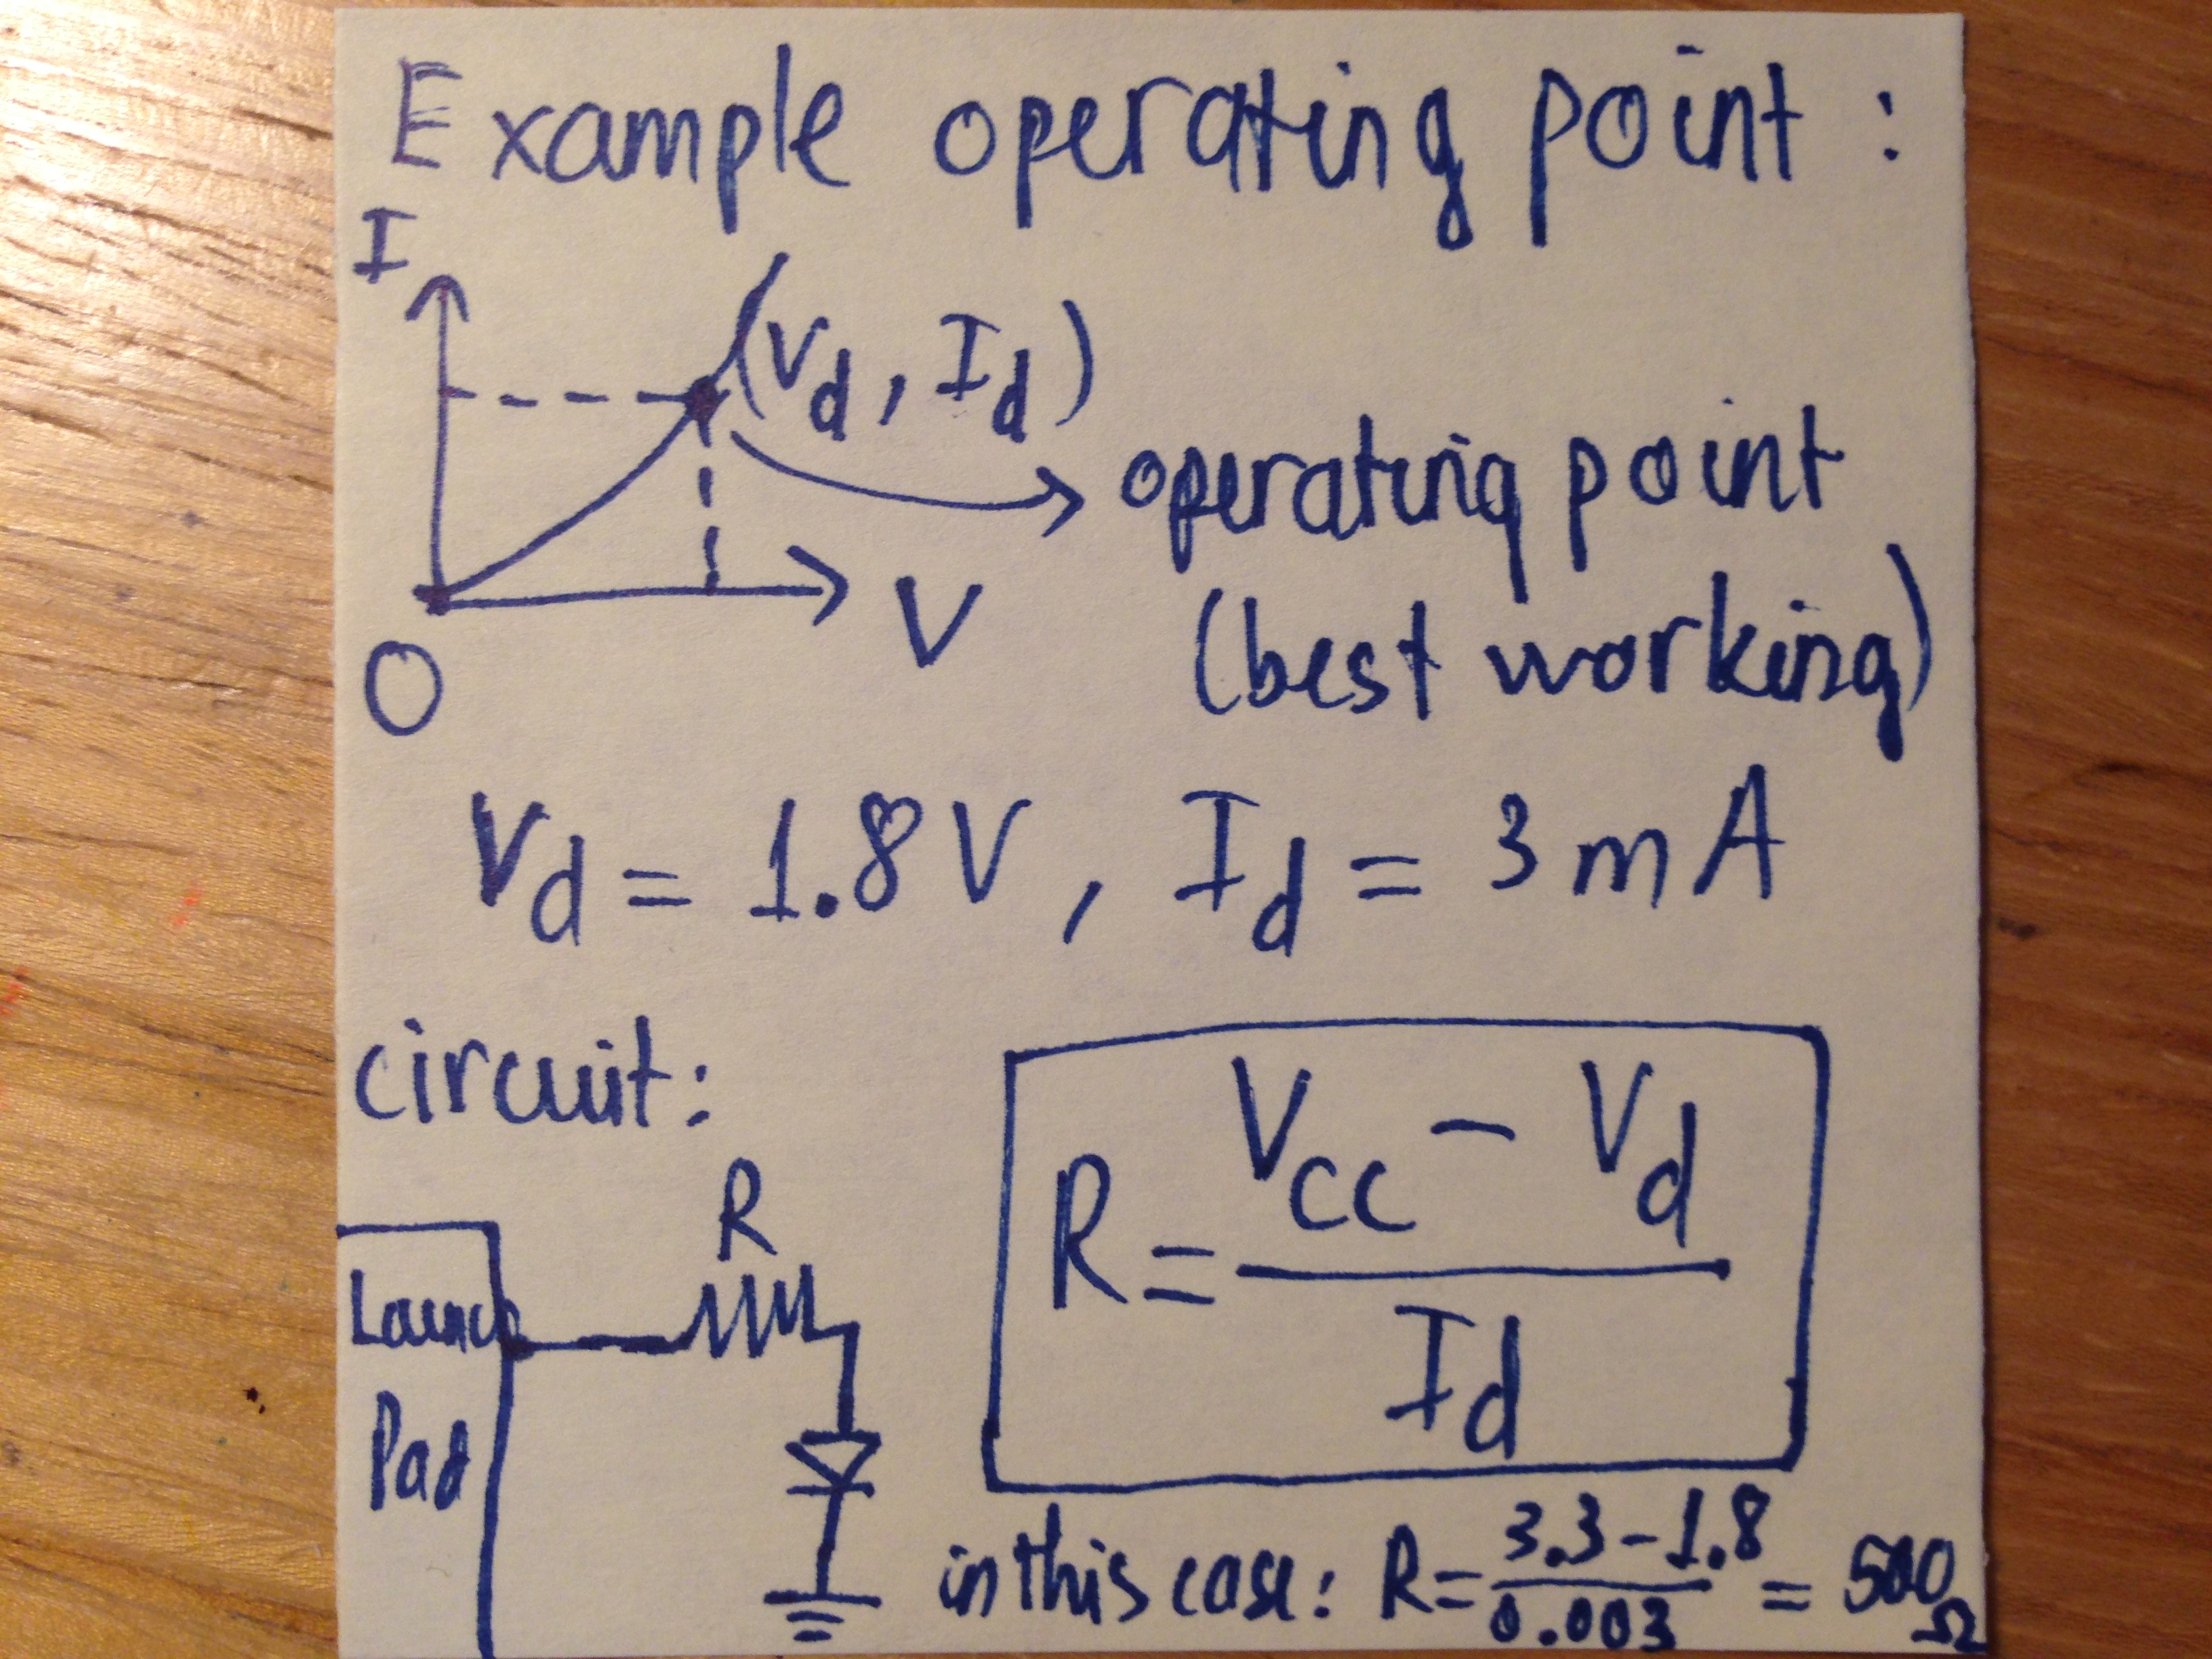 Example operating point :
I
(Vd, Id)
operating point
(best working)
V
O
Vd = 1.8 V , Id = 3 mA
circuit:
R
Launch
Pad
R = Vcc - Vd / Id
in this case: R = 3.3 - 1.8 / 0.003 = 500 Ω